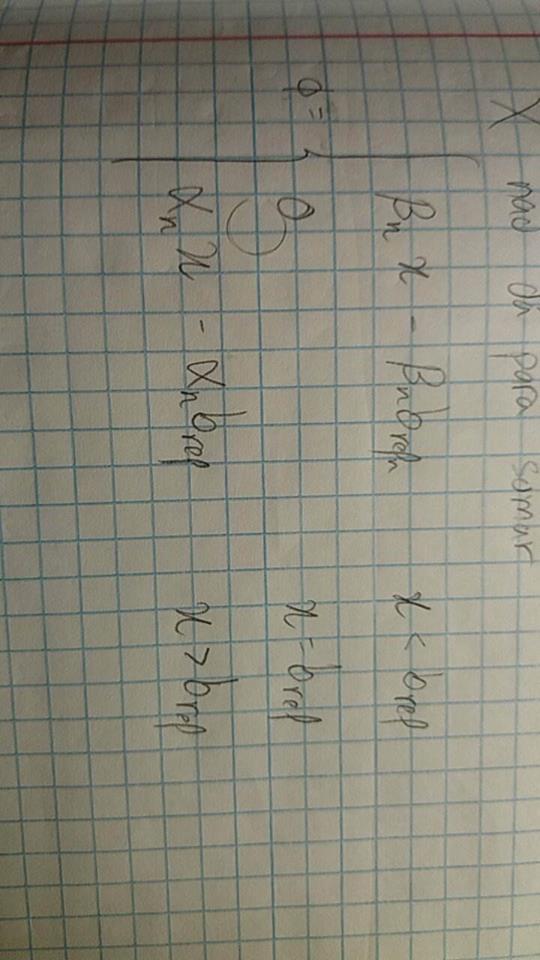 X não dá para somar
βₙ x - βₙ b_refₙ x < b_ref
ϕ = { 0 x = b_ref
αₙ x - αₙ b_ref x > b_ref